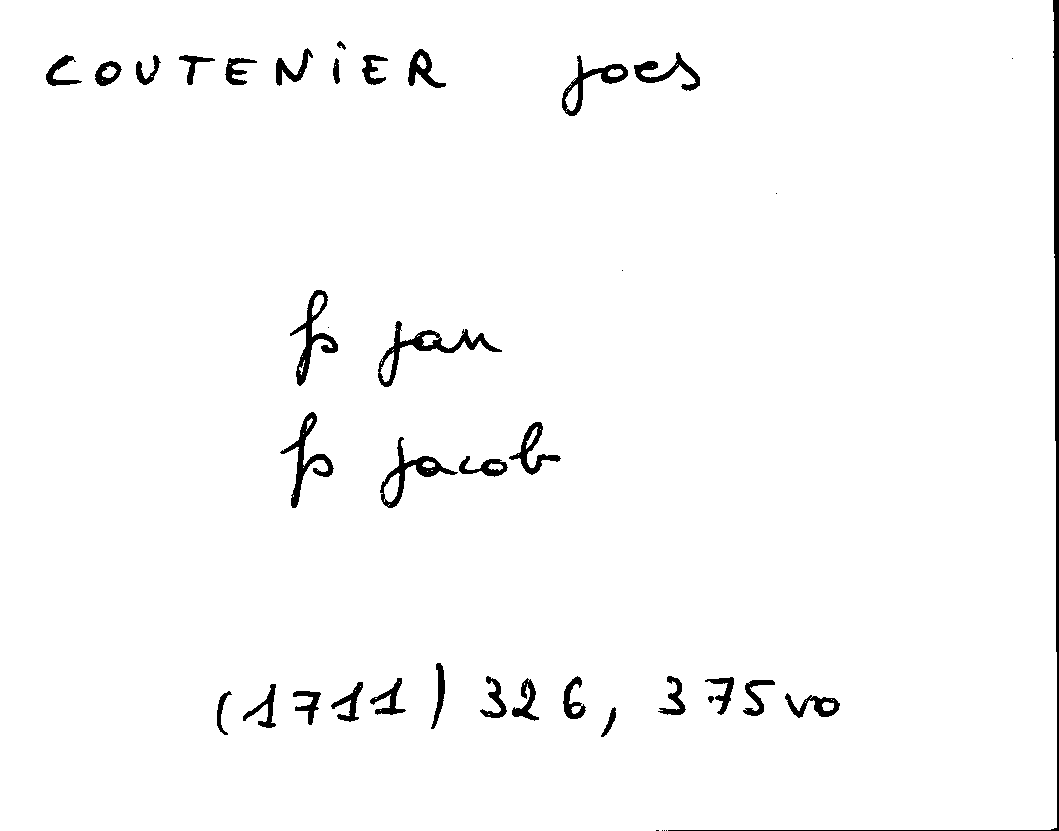 COUTENIER joes
fs jan
fs jacob
(1711) 326, 375vo